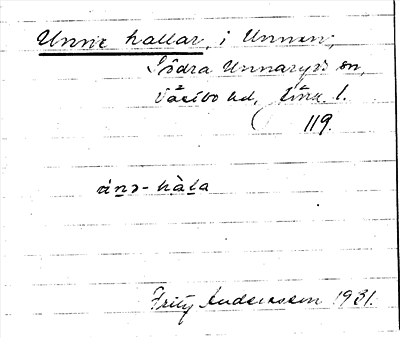 Unne hallar, i Unnen,
Södra Unnaryds sn,
Västbo hd, Jönk. l.
119.
ùnə-hàla
Fritz Andersson 1931.